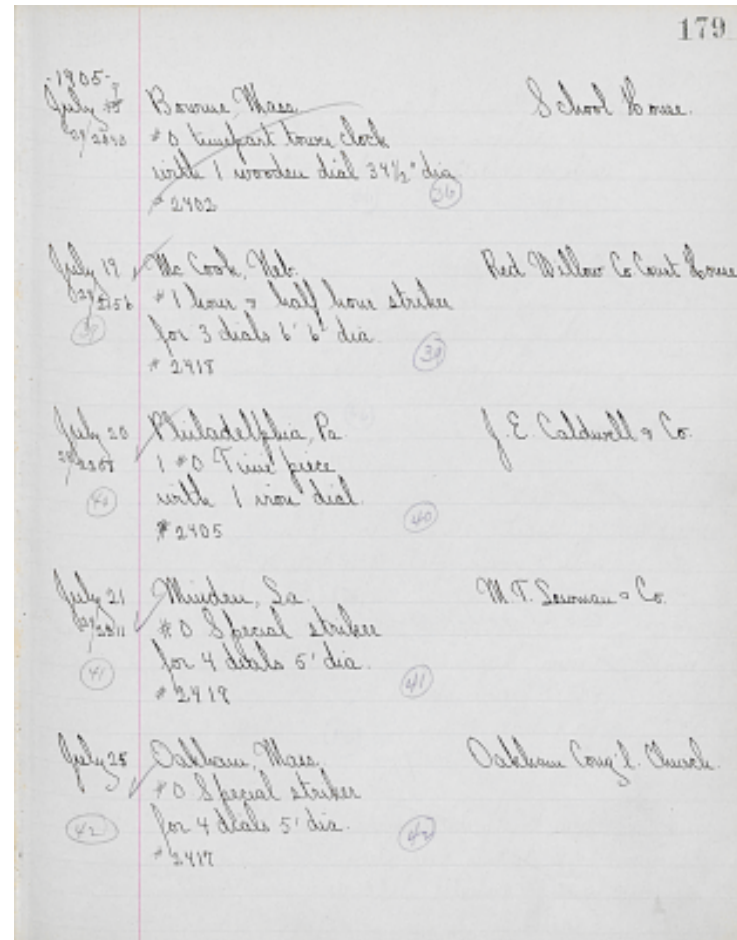 179
-1905-
July
Bourne, Mass. School House.
29/2040 #0 timepart tower clock
with 1 wooden dial 34½" dia
#2402 36
July 19 Mc Cook, Neb. Red Willow Co Court House
29/2156 #1 hour & half hour striker
for 3 dials 6' 6" dia.
39 #2418 39
July 20 Philadelphia, Pa. J. E. Caldwell & Co.
1 #0 Time piece
with 1 iron dial.
40 40
#2405
July 21 Minden, La. M. T. Lowman & Co.
#0 Special striker
for 4 dials 5' dia.
41 #2419 41
July 25 Oakham, Mass. Oakham Cong'l. Church.
#0 Special striker
for 4 dials 5' dia.
42 42
#2417